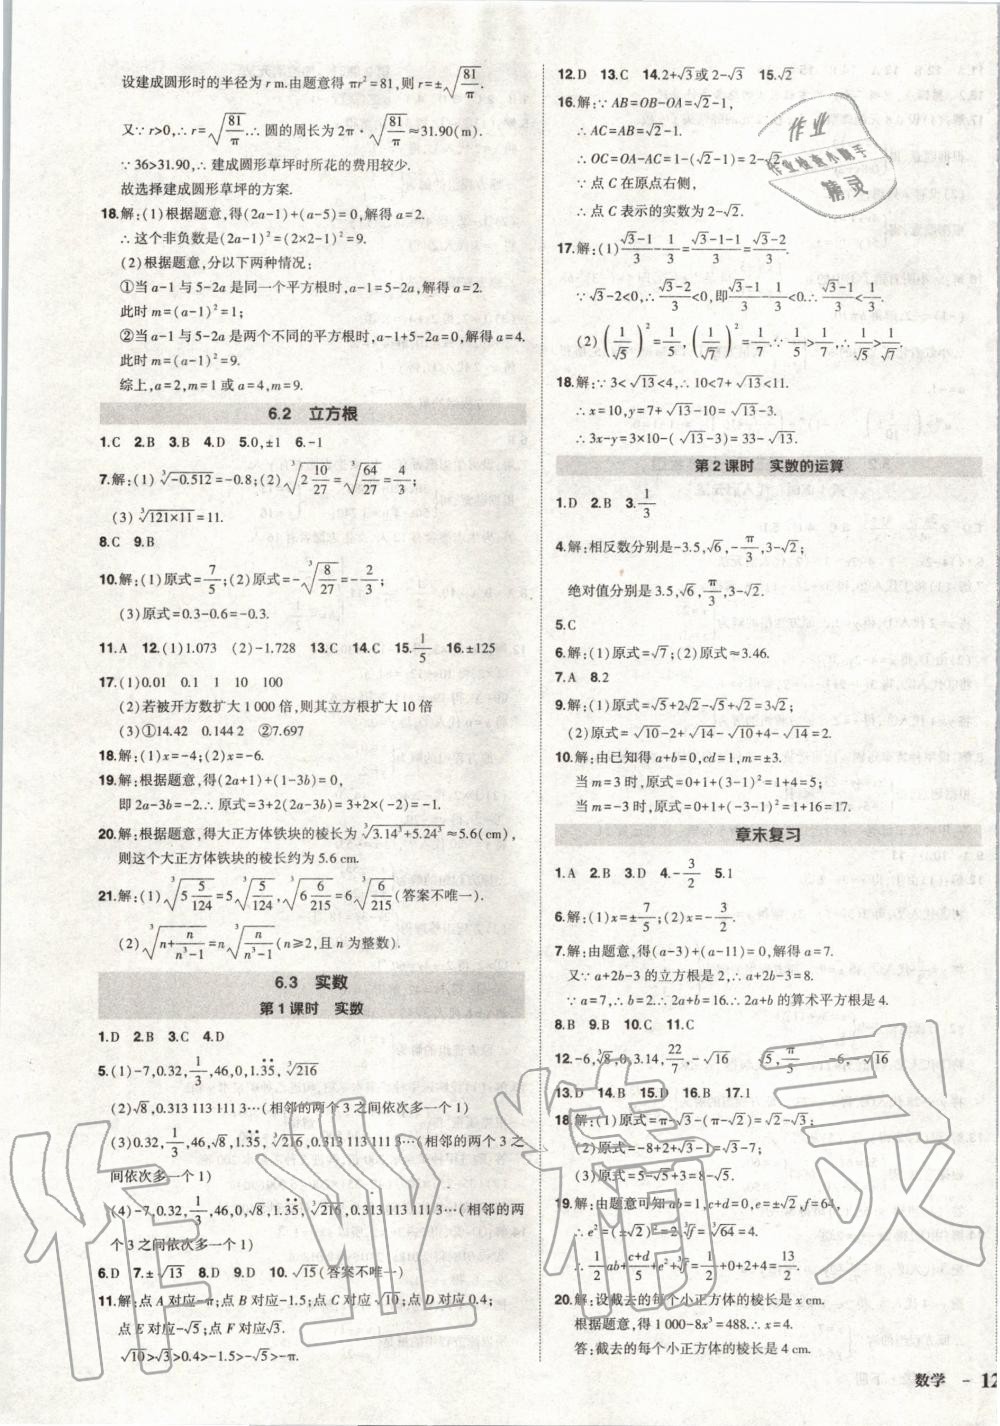 设建成圆形时的半径为 r m.由题意得 πr²=81,则 r=±√(81/π).
又∵ r>0,∴ r=√(81/π).∴ 圆的周长为 2π·√(81/π)≈31.90(m).
∵ 36>31.90,∴ 建成圆形草坪时所花的费用较少.
故选择建成圆形草坪的方案.
18.解:(1)根据题意,得(2a-1)+(a-5)=0,解得 a=2.
∴ 这个非负数是(2a-1)²=(2×2-1)²=9.
(2)根据题意,分以下两种情况:
①当 a-1 与 5-2a 是同一个平方根时,a-1=5-2a,解得 a=2.
此时 m=(a-1)²=1;
②当 a-1 与 5-2a 是两个不同的平方根时,a-1+5-2a=0,解得 a=4.
此时 m=(a-1)²=9.
综上,a=2,m=1 或 a=4,m=9.
6.2 立方根
1.C 2.B 3.B 4.D 5.0,±1 6.-1
7.解:(1)∛(-0.512)=-0.8;(2)∛(2 10/27)=∛(64/27)=4/3;
(3)∛(121×11)=11.
8.C 9.B
10.解:(1)原式=7/5;(2)原式=-∛(8/27)=-2/3;
(3)原式=0.3-0.6=-0.3.
11.A 12.(1)1.073 (2)-1.728 13.C 14.C 15.1/5 16.±125
17.(1)0.01 0.1 1 10 100
(2)若被开方数扩大 1 000 倍,则其立方根扩大 10 倍
(3)①14.42 0.144 2 ②7.697
18.解:(1)x=-4;(2)x=-6.
19.解:根据题意,得(2a+1)+(1-3b)=0,
即 2a-3b=-2.∴ 原式=3+2(2a-3b)=3+2×(-2)=-1.
20.解:根据题意,得大正方体铁块的棱长为∛(3.14³+5.24³)≈5.6(cm),
则这个大正方体铁块的棱长约为 5.6 cm.
21.解:(1)∛(5 5/124)=5∛(5/124),∛(6 6/215)=6∛(6/215)(答案不唯一).
(2)∛(n+n/(n³-1))=n∛(n/(n³-1))(n≥2,且 n 为整数).
6.3 实数
第 1 课时 实数
1.D 2.B 3.C 4.D
5.(1)-7,0.32,1/3,46,0,1.3̇5̇,∛216
(2)√8,0.313 113 111 3…(相邻的两个 3 之间依次多一个 1)
(3)0.32,1/3,46,√8,1.3̇5̇,∛216,0.313 113 111 3…(相邻的两个 3 之
间依次多一个 1)
(4)-7,0.32,1/3,46,0,√8,1.3̇5̇,∛216,0.313 113 111 3…(相邻的两
个 3 之间依次多一个 1)
6.D 7.±√13 8.D 9.D 10.√15(答案不唯一)
11.解:点 A 对应-π;点 B 对应-1.5;点 C 对应√10;点 D 对应 0.4;
点 E 对应-√5;点 F 对应√3.
√10>√3>0.4>-1.5>-√5>-π.
12.D 13.C 14.2+√3或 2-√3 15.√2
16.解:∵ AB=OB-OA=√2-1,
∴ AC=AB=√2-1,
∴ OC=OA-AC=1-(√2-1)=2-√2.
∵ 点 C 在原点右侧,
∴ 点 C 表示的实数为 2-√2.
17.解:(1)(√3-1)/3-1/3=(√3-1-1)/3=(√3-2)/3.
∵ √3-2<0,∴ (√3-2)/3<0,即(√3-1)/3-1/3<0.∴ (√3-1)/3<1/3.
(2)(1/√5)²=1/5,(1/√7)²=1/7.∵ 1/5>1/7,∴ 1/√5>1/√7.
18.解:∵ 3<√13<4,∴ 10<7+√13<11.
∴ x=10,y=7+√13-10=√13-3.
∴ 3x-y=3×10-(√13-3)=33-√13.
第 2 课时 实数的运算
1.D 2.B 3.1/3
4.解:相反数分别是-3.5,√6,-π/3,3-√2;
绝对值分别是 3.5,√6,π/3,3-√2.
5.C
6.解:(1)原式=√7;(2)原式≈3.46.
7.A 8.2
9.解:(1)原式=√5+2√2-√5+√2=3√2;
(2)原式=√10-2+√14-√10+4-√14=2.
10.解:由已知得 a+b=0,cd=1,m=±3.
当 m=3 时,原式=0+1+(3-1)²=1+4=5;
当 m=-3 时,原式=0+1+(-3-1)²=1+16=17.
章末复习
1.A 2.B 3.D 4.-3/2 5.1
6.解:(1)x=±7/5;(2)x=-3/2.
7.解:由题意,得(a-3)+(a-11)=0,解得 a=7.
又∵ a+2b-3 的立方根是 2,∴ a+2b-3=8.
∵ a=7,∴ b=2.∴ a+b²=7+2²=11.
8.B 9.B 10.C 11.C
12.-6,∛8,0,3.14,22/7,-√16 √5,π/5 -6,-√16
13.D 14.B 15.D 16.B 17.1
18.解:(1)原式=π-√3-(π-√2)=√2-√3;
(2)原式=-8+2+√3-1=√3-7;
(3)原式=5-√5+3=8-√5.
19.解:由题意可知 ab=1,c+d=0,e=±√2,f=64,
∴ e²=(±√2)²=2,∛f=∛64=4.
∴ 1/2ab+(c+d)/5+e²+∛f=1/2+0+2+4=13/2.
20.解:设截去的每个小正方体的棱长是 x cm.
根据题意,得 1 000-8x³=488.∴ x=4.
答:截去的每个小正方体的棱长是 4 cm.
数学 - 12
作业
作业检查小助手
精灵
作业精灵